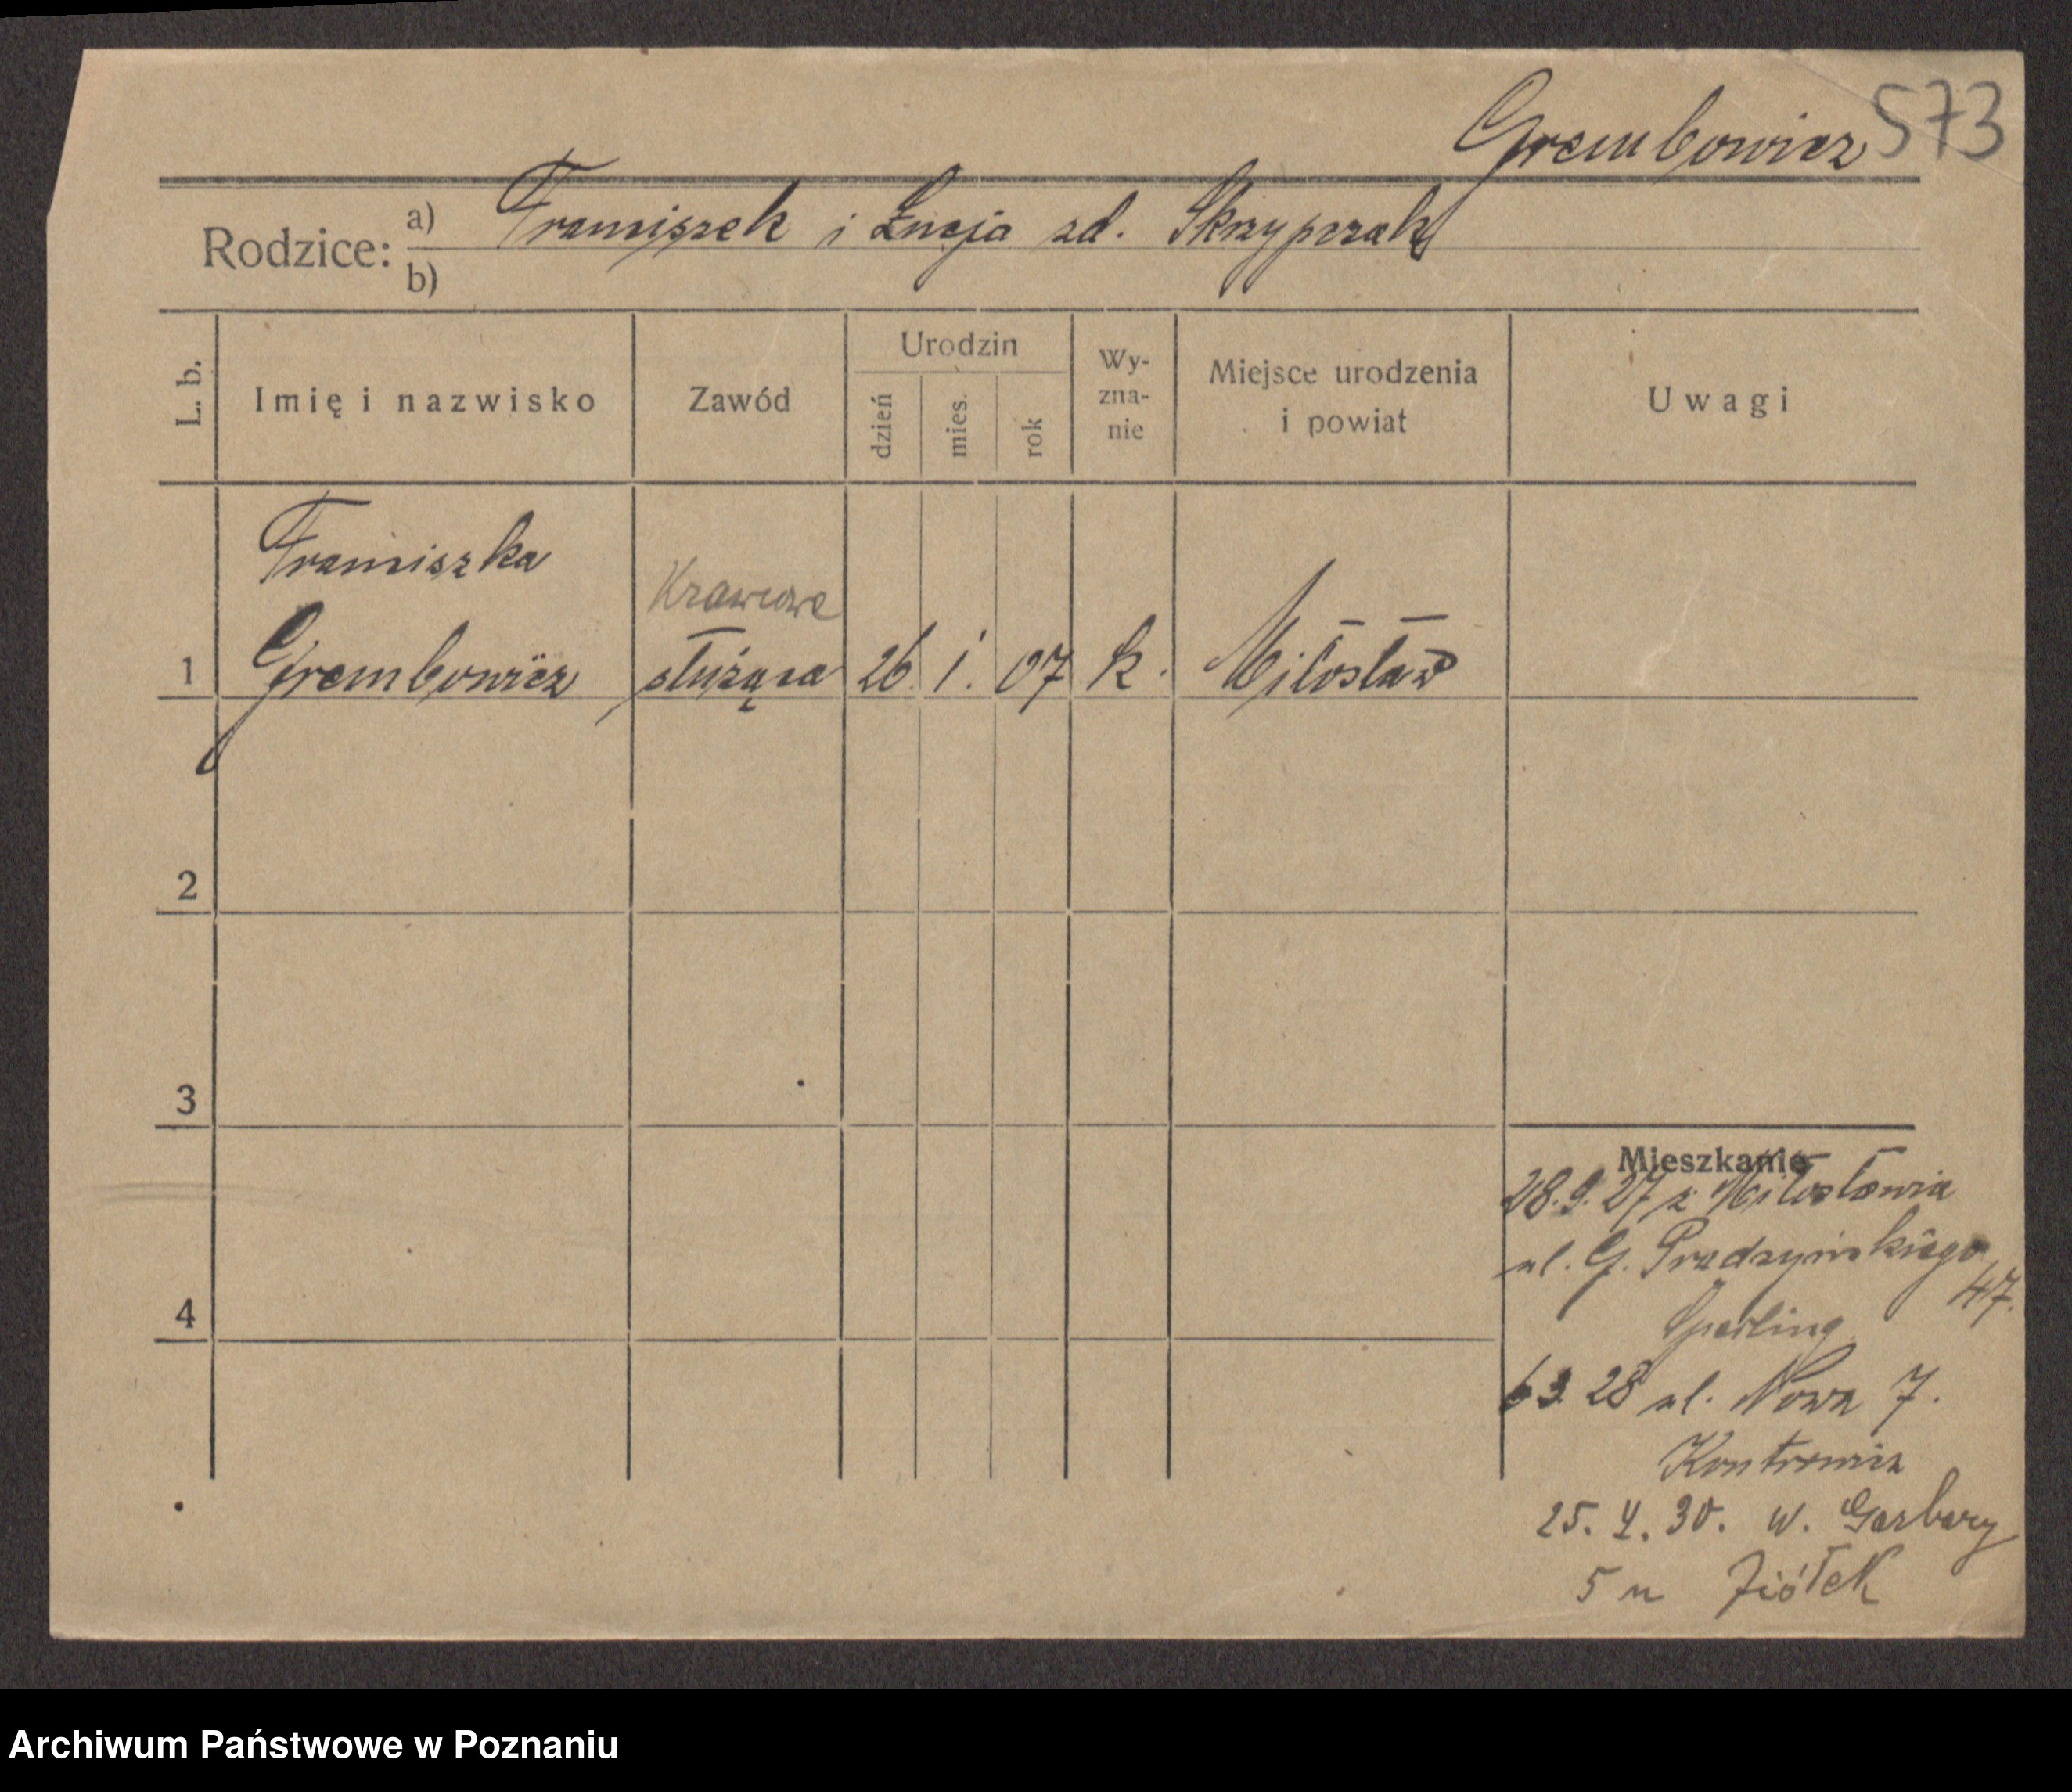 Grembowicz 573
Rodzice: a) Franciszek i Łucja zd. Skrzypczak
b)
L. b. Imię i nazwisko Zawód Urodzin dzień mies. rok Wy-zna-nie Miejsce urodzenia i powiat Uwagi
Franciszka
Krawcowa
1 Grembowicz służąca 26. 1. 07 k. Miłosław
2
3
Mieszkanie
28.9.27 z Miłosławia
ul. G. Prądzyńskiego
47.
4
Sperling
3. 28 ul. Nowa 7.
Kontrowicz
25. 4. 30. w. Garbary
5 Ziółek
Archiwum Państwowe w Poznaniu